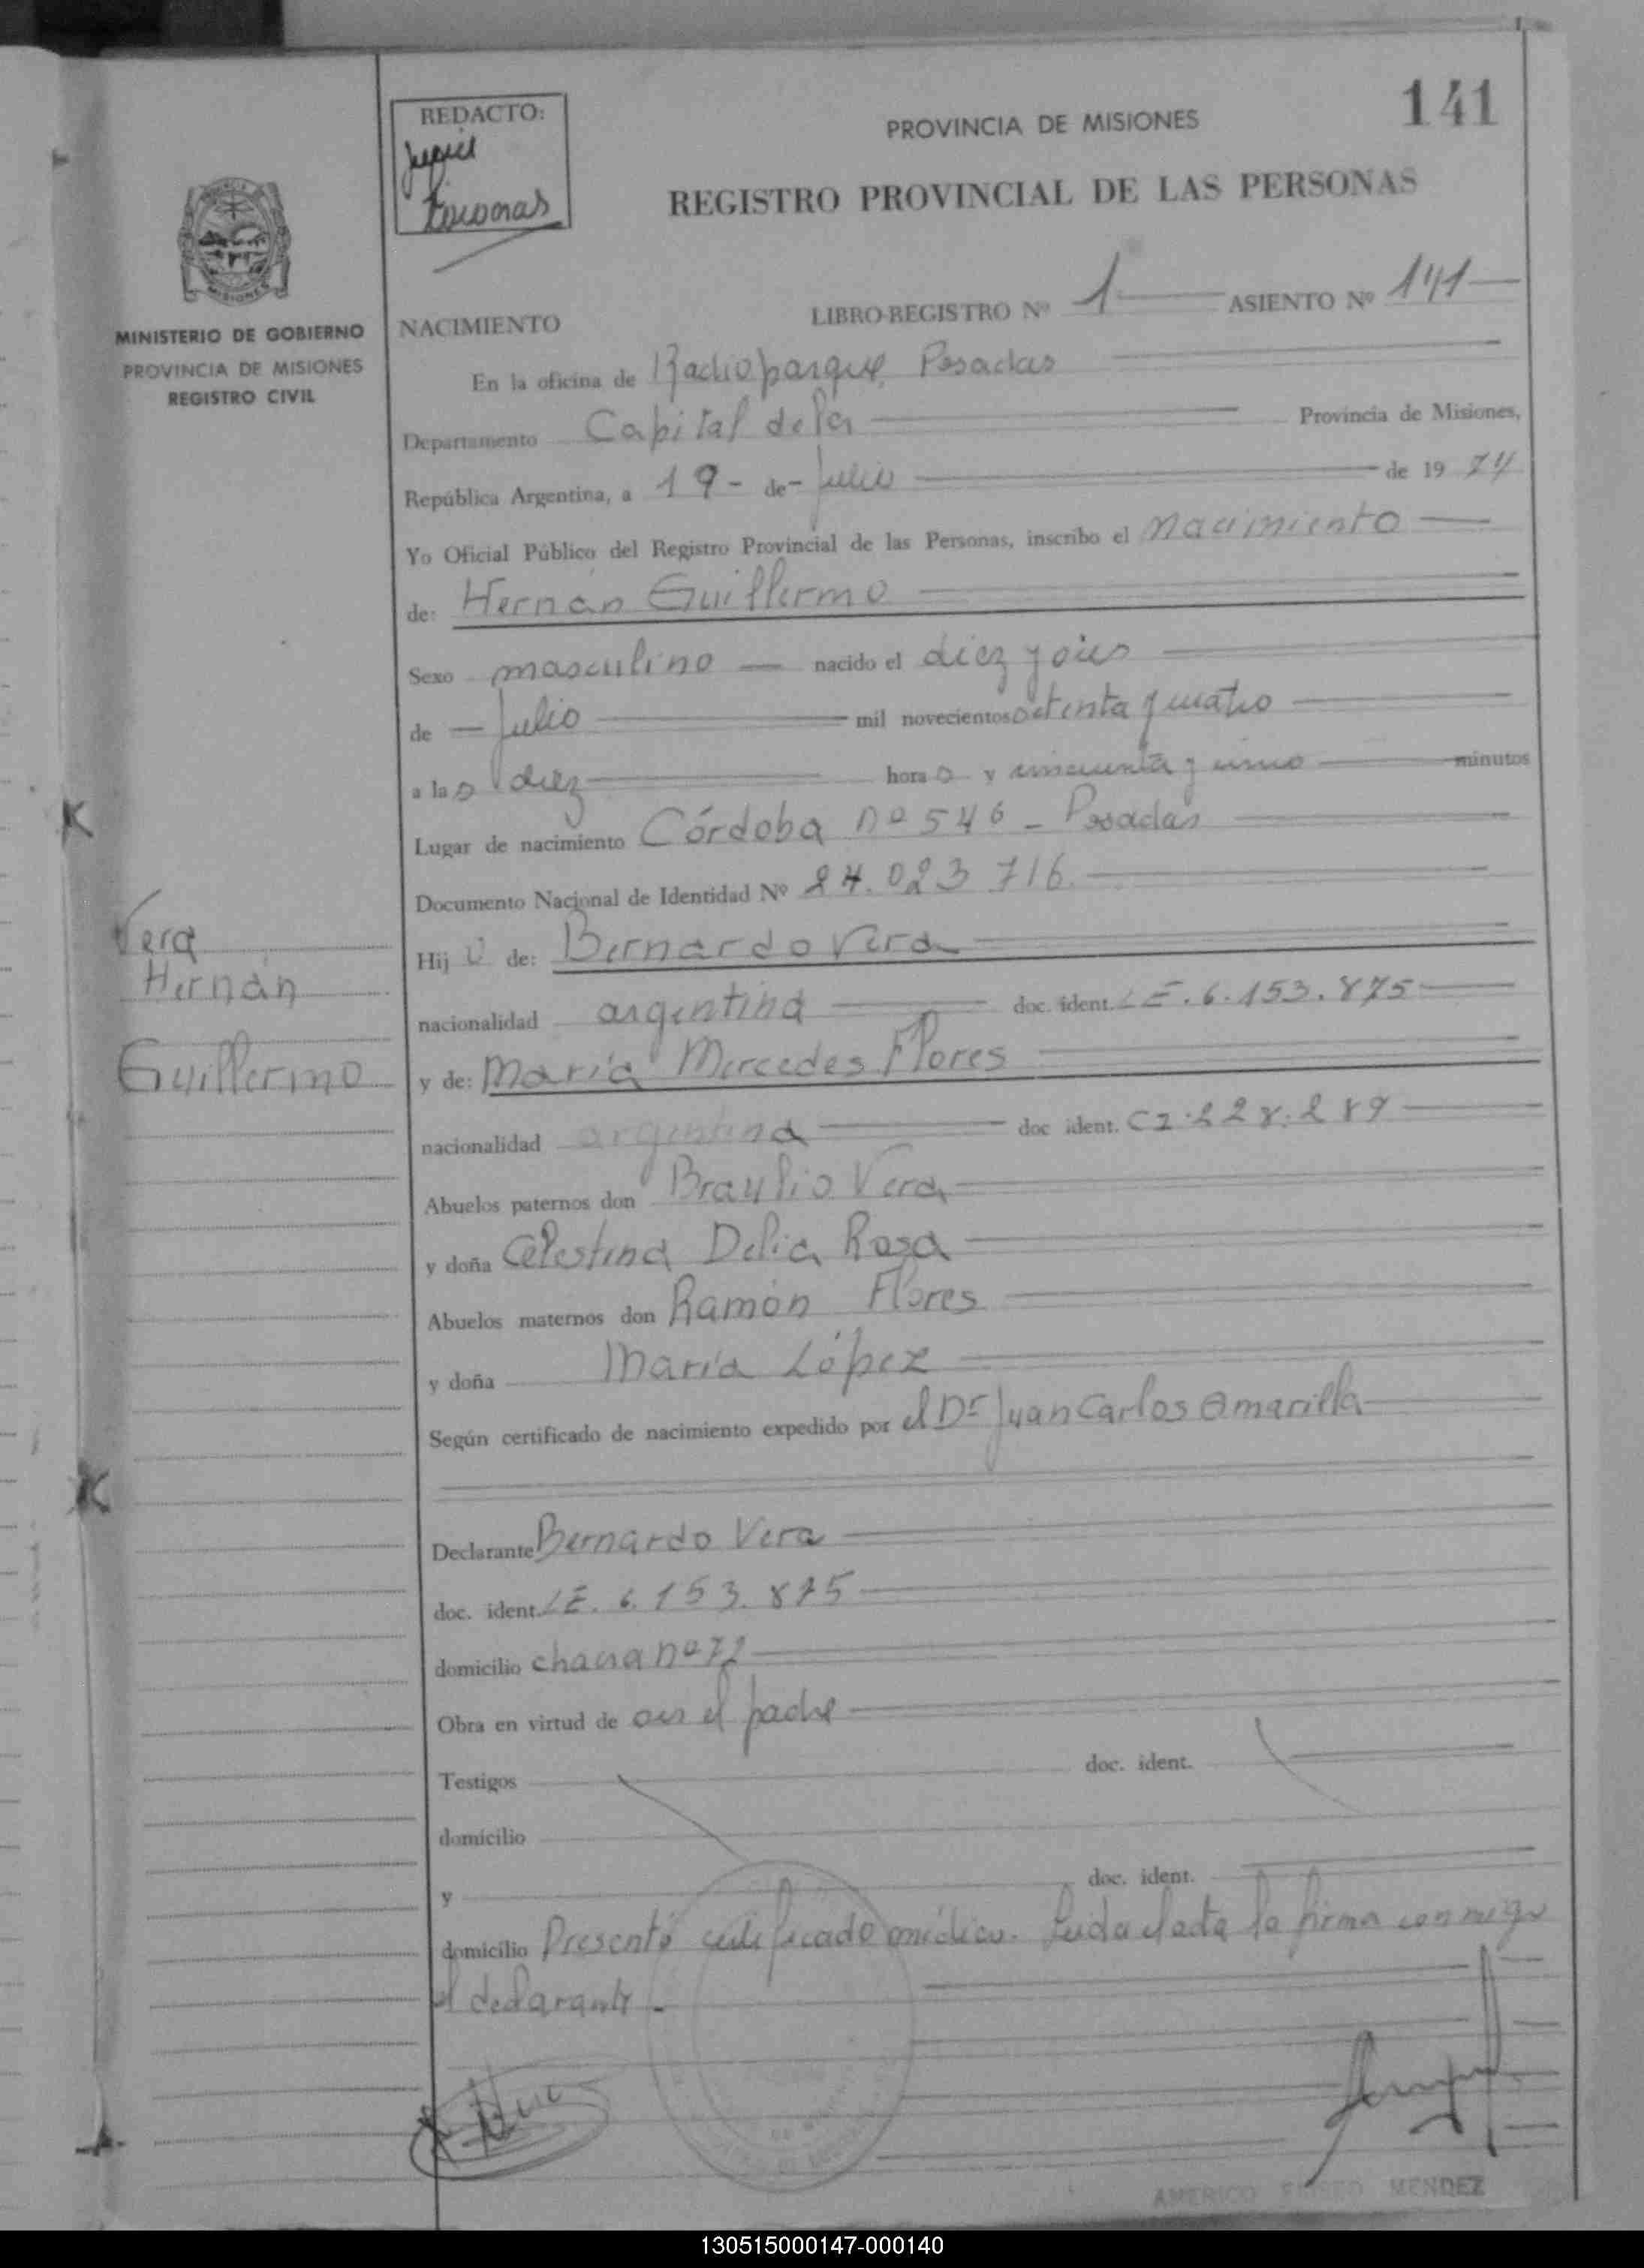 141
REDACTO:
PROVINCIA DE MISIONES
REGISTRO PROVINCIAL DE LAS PERSONAS
MISIONES
MINISTERIO DE GOBIERNO
PROVINCIA DE MISIONES
REGISTRO CIVIL
NACIMIENTO LIBRO-REGISTRO Nº 1 ASIENTO Nº 141
En la oficina de Radioparque Posadas
Departamento Capital de la Provincia de Misiones,
República Argentina, a 19 - de - Julio de 19 74
Yo Oficial Público del Registro Provincial de las Personas, inscribo el nacimiento
de: Hernán Guillermo
Sexo masculino nacido el diez y
de Julio mil novecientos setenta y cuatro
a las diez horas y cincuenta y uno minutos
Lugar de nacimiento Córdoba nº 546 - Posadas
Documento Nacional de Identidad Nº 24.023.716.
Hijo de: Bernardo Vera
nacionalidad argentina doc. ident. LE. 6.153.875
y de: María Mercedes Flores
nacionalidad argentina doc ident. 228.289
Abuelos paternos don Braulio Vera
y doña Celestina Delia Rosa
Abuelos maternos don Ramón Flores
y doña María López
Según certificado de nacimiento expedido por el Dr Juan Carlos Amarilla
Declarante Bernardo Vera
doc. ident. LE. 6.153.875
domicilio chacra nº 72
Obra en virtud de ser el padre
Testigos doc. ident.
domicilio
y doc. ident.
domicilio Presentó certificado médico. Leida el acta la firma conmigo
el declarante -
Vera
Hernán
Guillermo
AMERICO MENDEZ
130515000147-000140